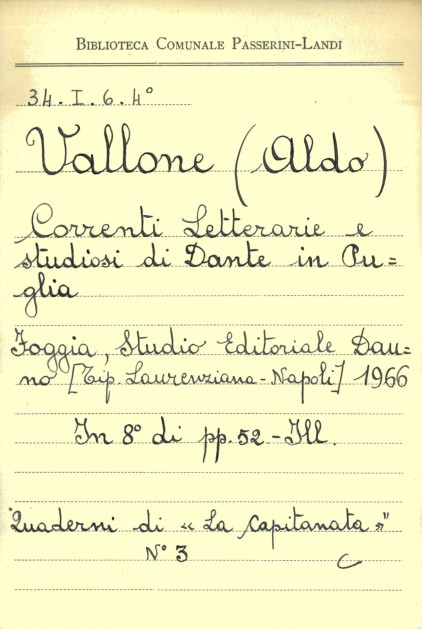 BIBLIOTECA COMUNALE PASSERINI-LANDI
34. I. 6. 4°
Vallone (Aldo)
Correnti Letterarie e
studiosi di Dante in Pu=
glia
Foggia, Studio Editoriale Dau=
no [Tip. Laurenziana-Napoli] 1966
In 8° di pp. 52.-Ill.
Quaderni di « La Capitanata »"
N° 3
C